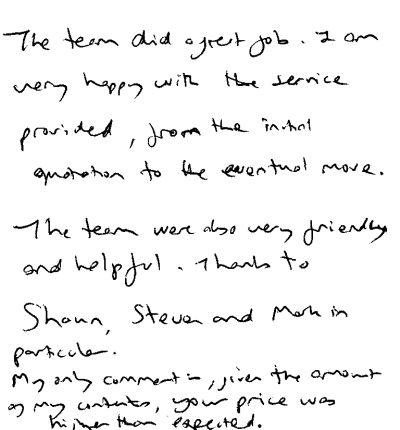 The team did a great job. I am
very happy with the service
provided, from the initial
quotation to the eventual move.
The team were also very friendly
and helpful. Thanks to
Shaun, Steven and Mark in
particular.
My only comment is, given the amount
of my contents, your price was
higher than expected.